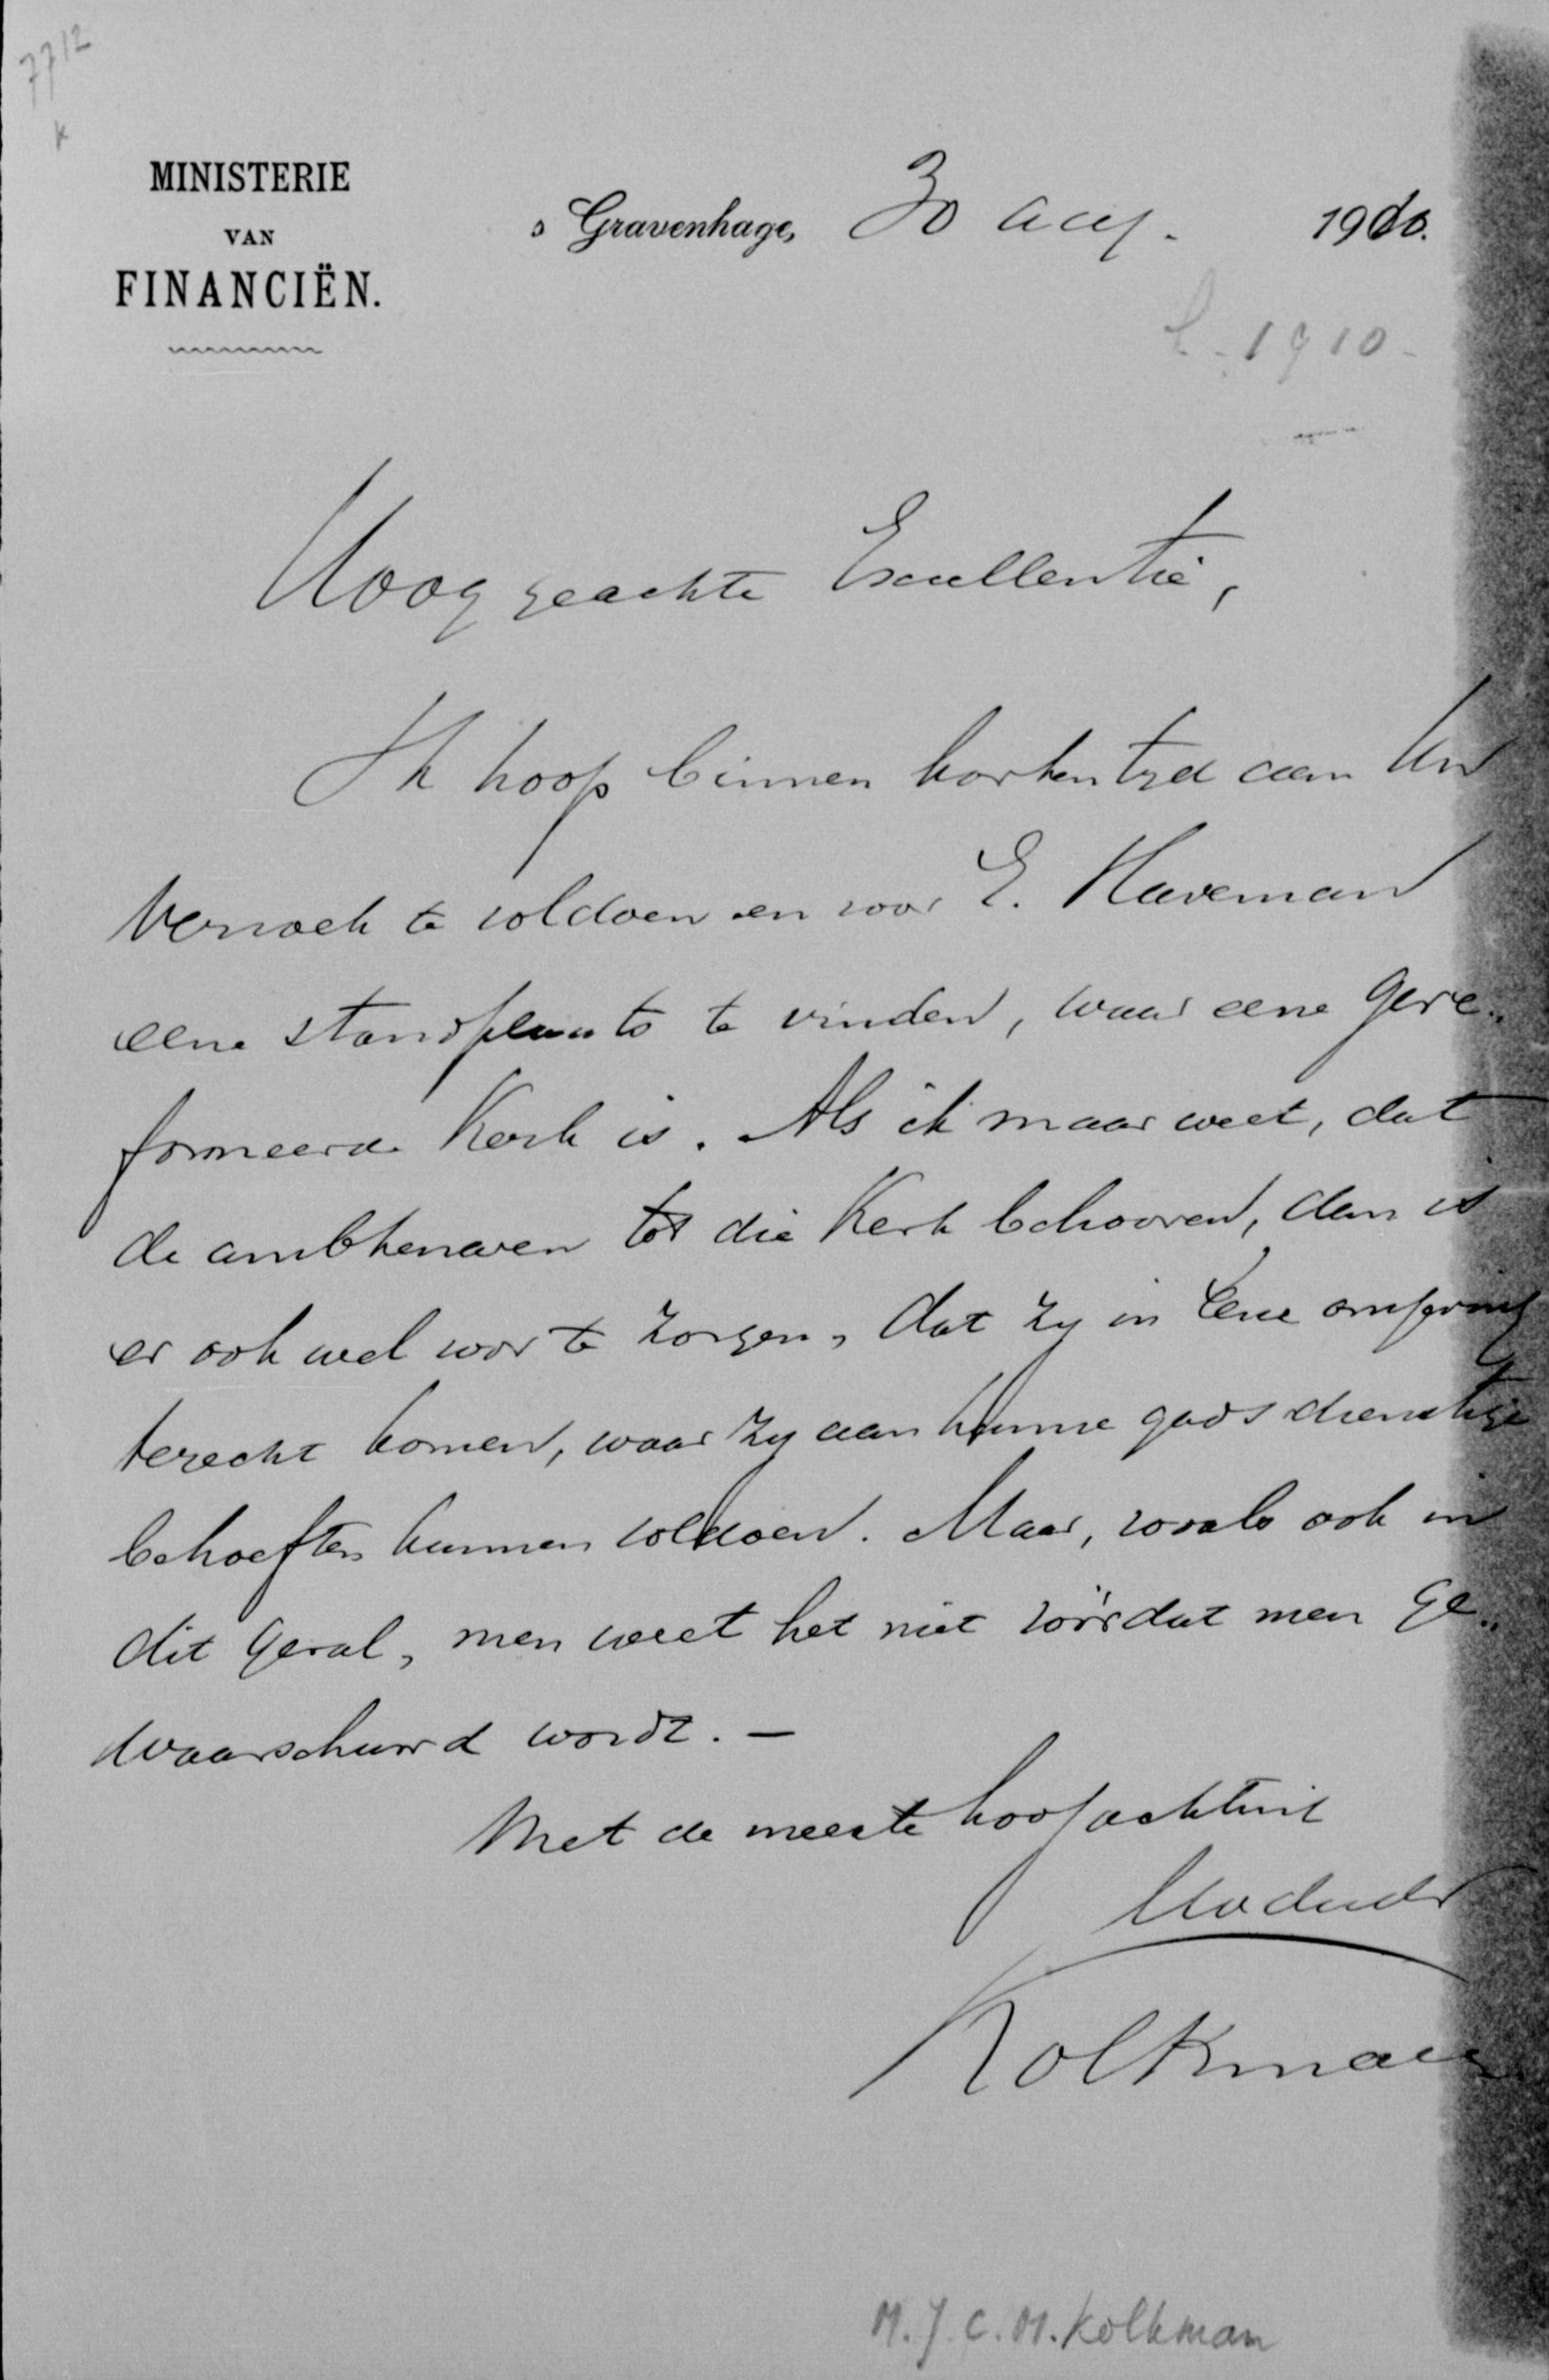 7712
k
MINISTERIE
VAN
FINANCIËN.
s Gravenhage, 30 Aug. 1910.
1910
Hooggeachte Excellentie,
Ik hoop binnen korten tijd aan Uw
verzoek te voldoen en voor E. Haveman
eene standplaats te vinden, waar eene Gere„
formeerde Kerk is. Als ik maar weet, dat
de ambtenaren tot die Kerk behooren, dan is
er ook wel voor te zorgen, dat zij in eene omgeving
terecht komen, waar zij aan hunne godsdienstige
behoeften kunnen voldoen. Maar, zooals ook in
dit geval, men weet het niet vóórdat men ge„
waarschuwd wordt. —
Met de meeste hoogachting
Uw dw dr
Kolkman
M. J. C. M. Kolkman